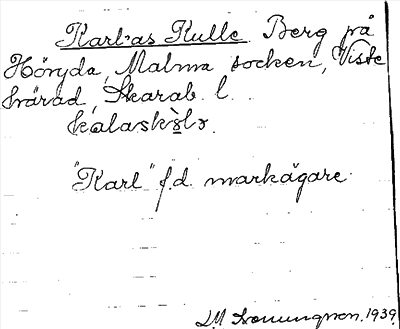 Karl:as Kulle. Berg på
Höryda, Malma socken, Viste
härad, Skarab. l.
kálaskùlə.
"Karl" f.d. markägare.
1939.